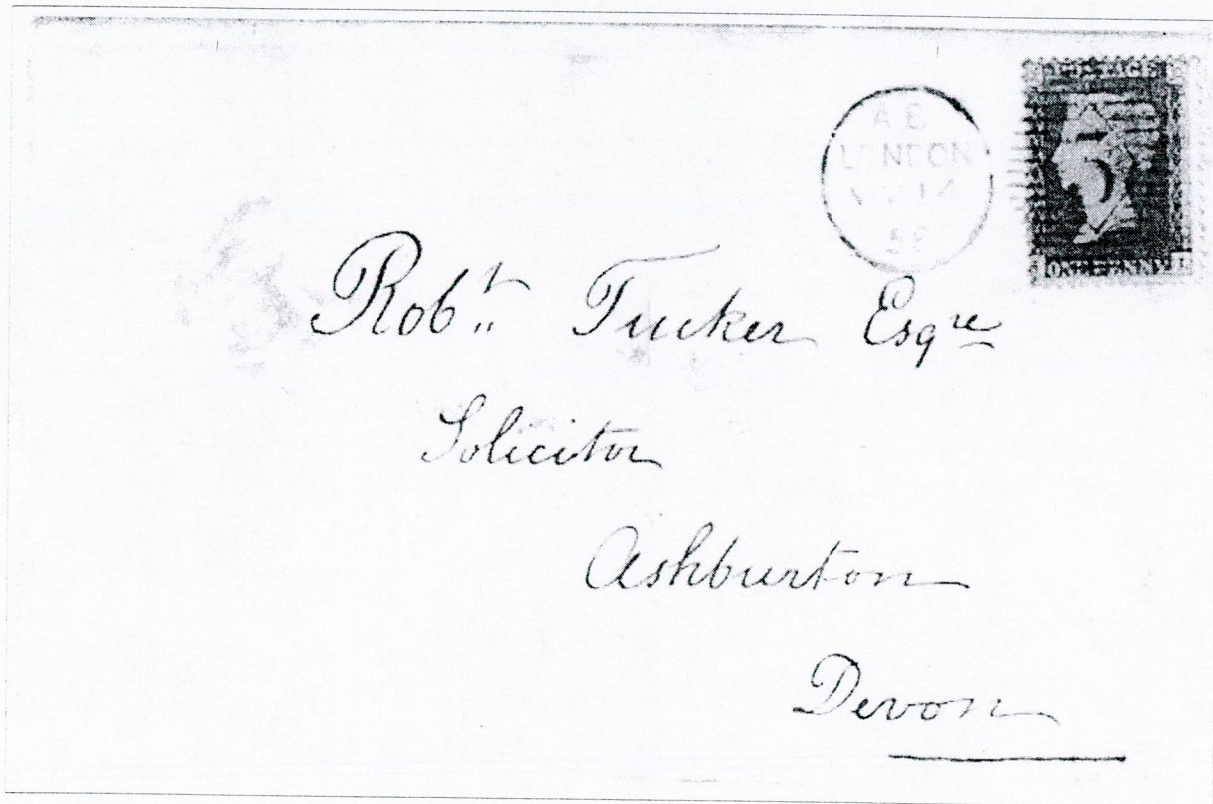 A E
LONDON
58
ONE PENNY
Robt Tucker Esqre
Solicitor
Ashburton
Devon